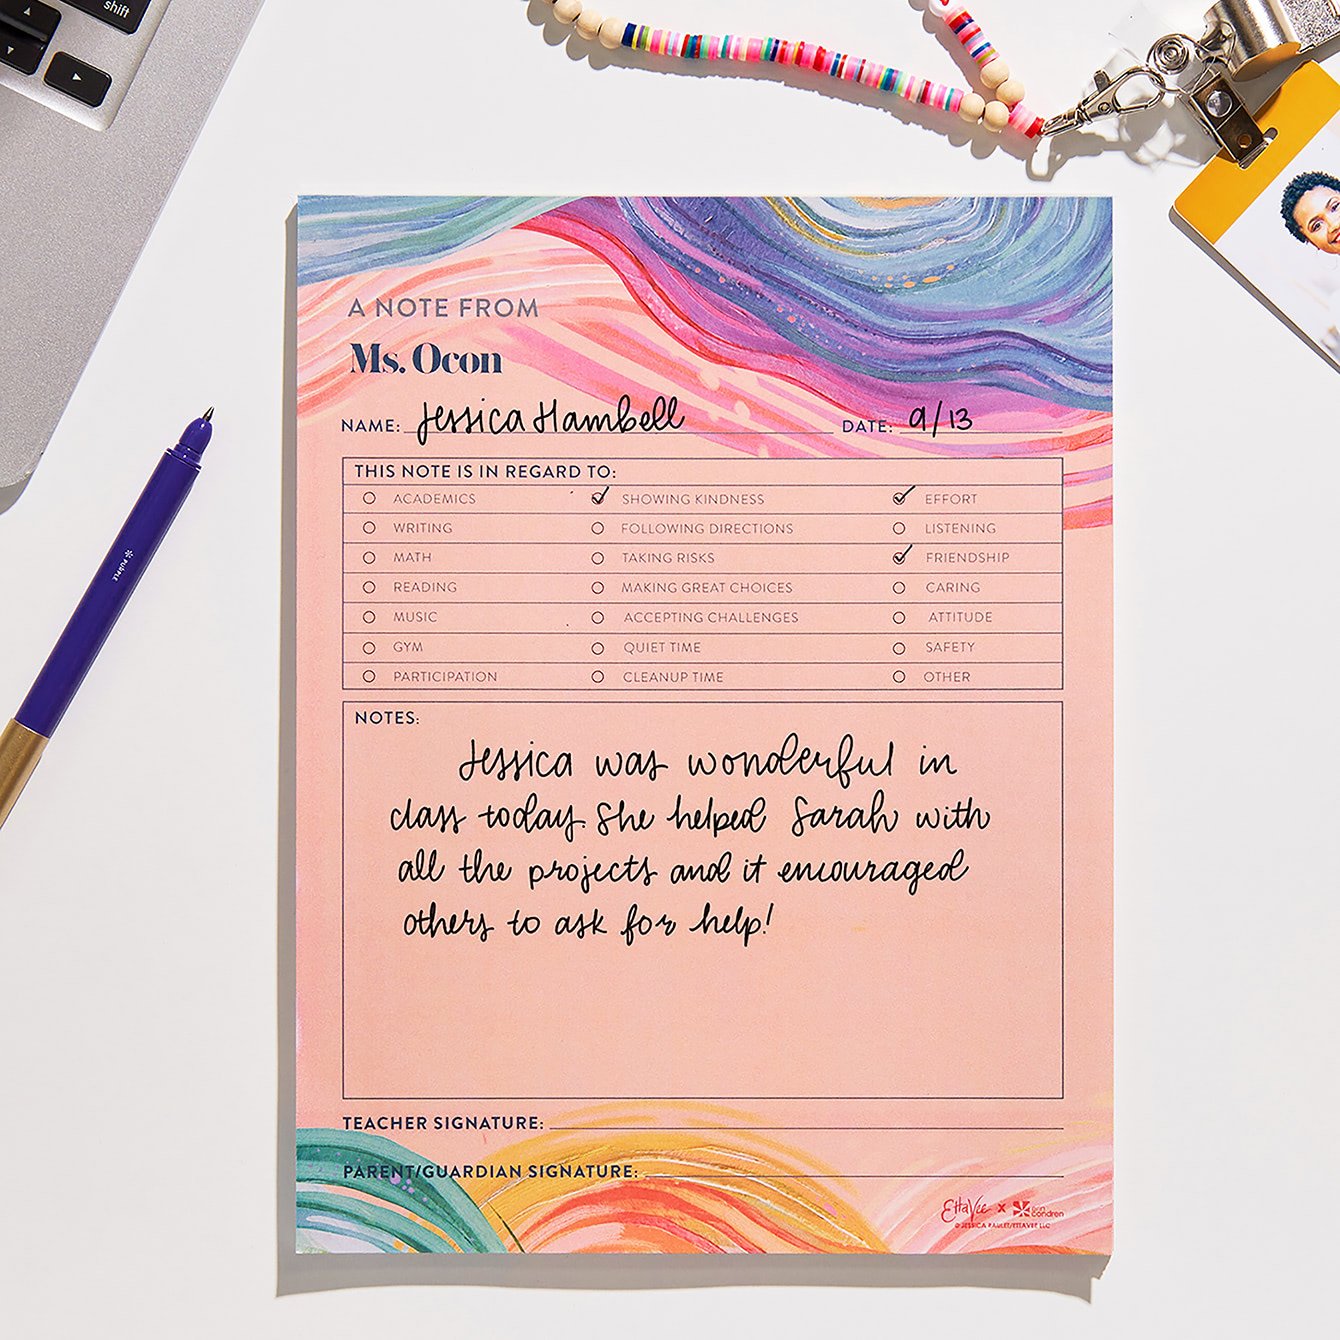 shift
A NOTE FROM
Ms. Ocon
NAME: Jessica Hambell DATE: 9/13
THIS NOTE IS IN REGARD TO:
ACADEMICS SHOWING KINDNESS EFFORT
WRITING FOLLOWING DIRECTIONS LISTENING
MATH TAKING RISKS FRIENDSHIP
READING MAKING GREAT CHOICES CARING
MUSIC ACCEPTING CHALLENGES ATTITUDE
GYM QUIET TIME SAFETY
PARTICIPATION CLEANUP TIME OTHER
NOTES:
Jessica was wonderful in
class today. She helped Sarah with
all the projects and it encouraged
others to ask for help!
TEACHER SIGNATURE:
PARENT/GUARDIAN SIGNATURE:
EttaVee x erin condren
© JESSICA PAULEY/ETTAVEE LLC
PURPLE